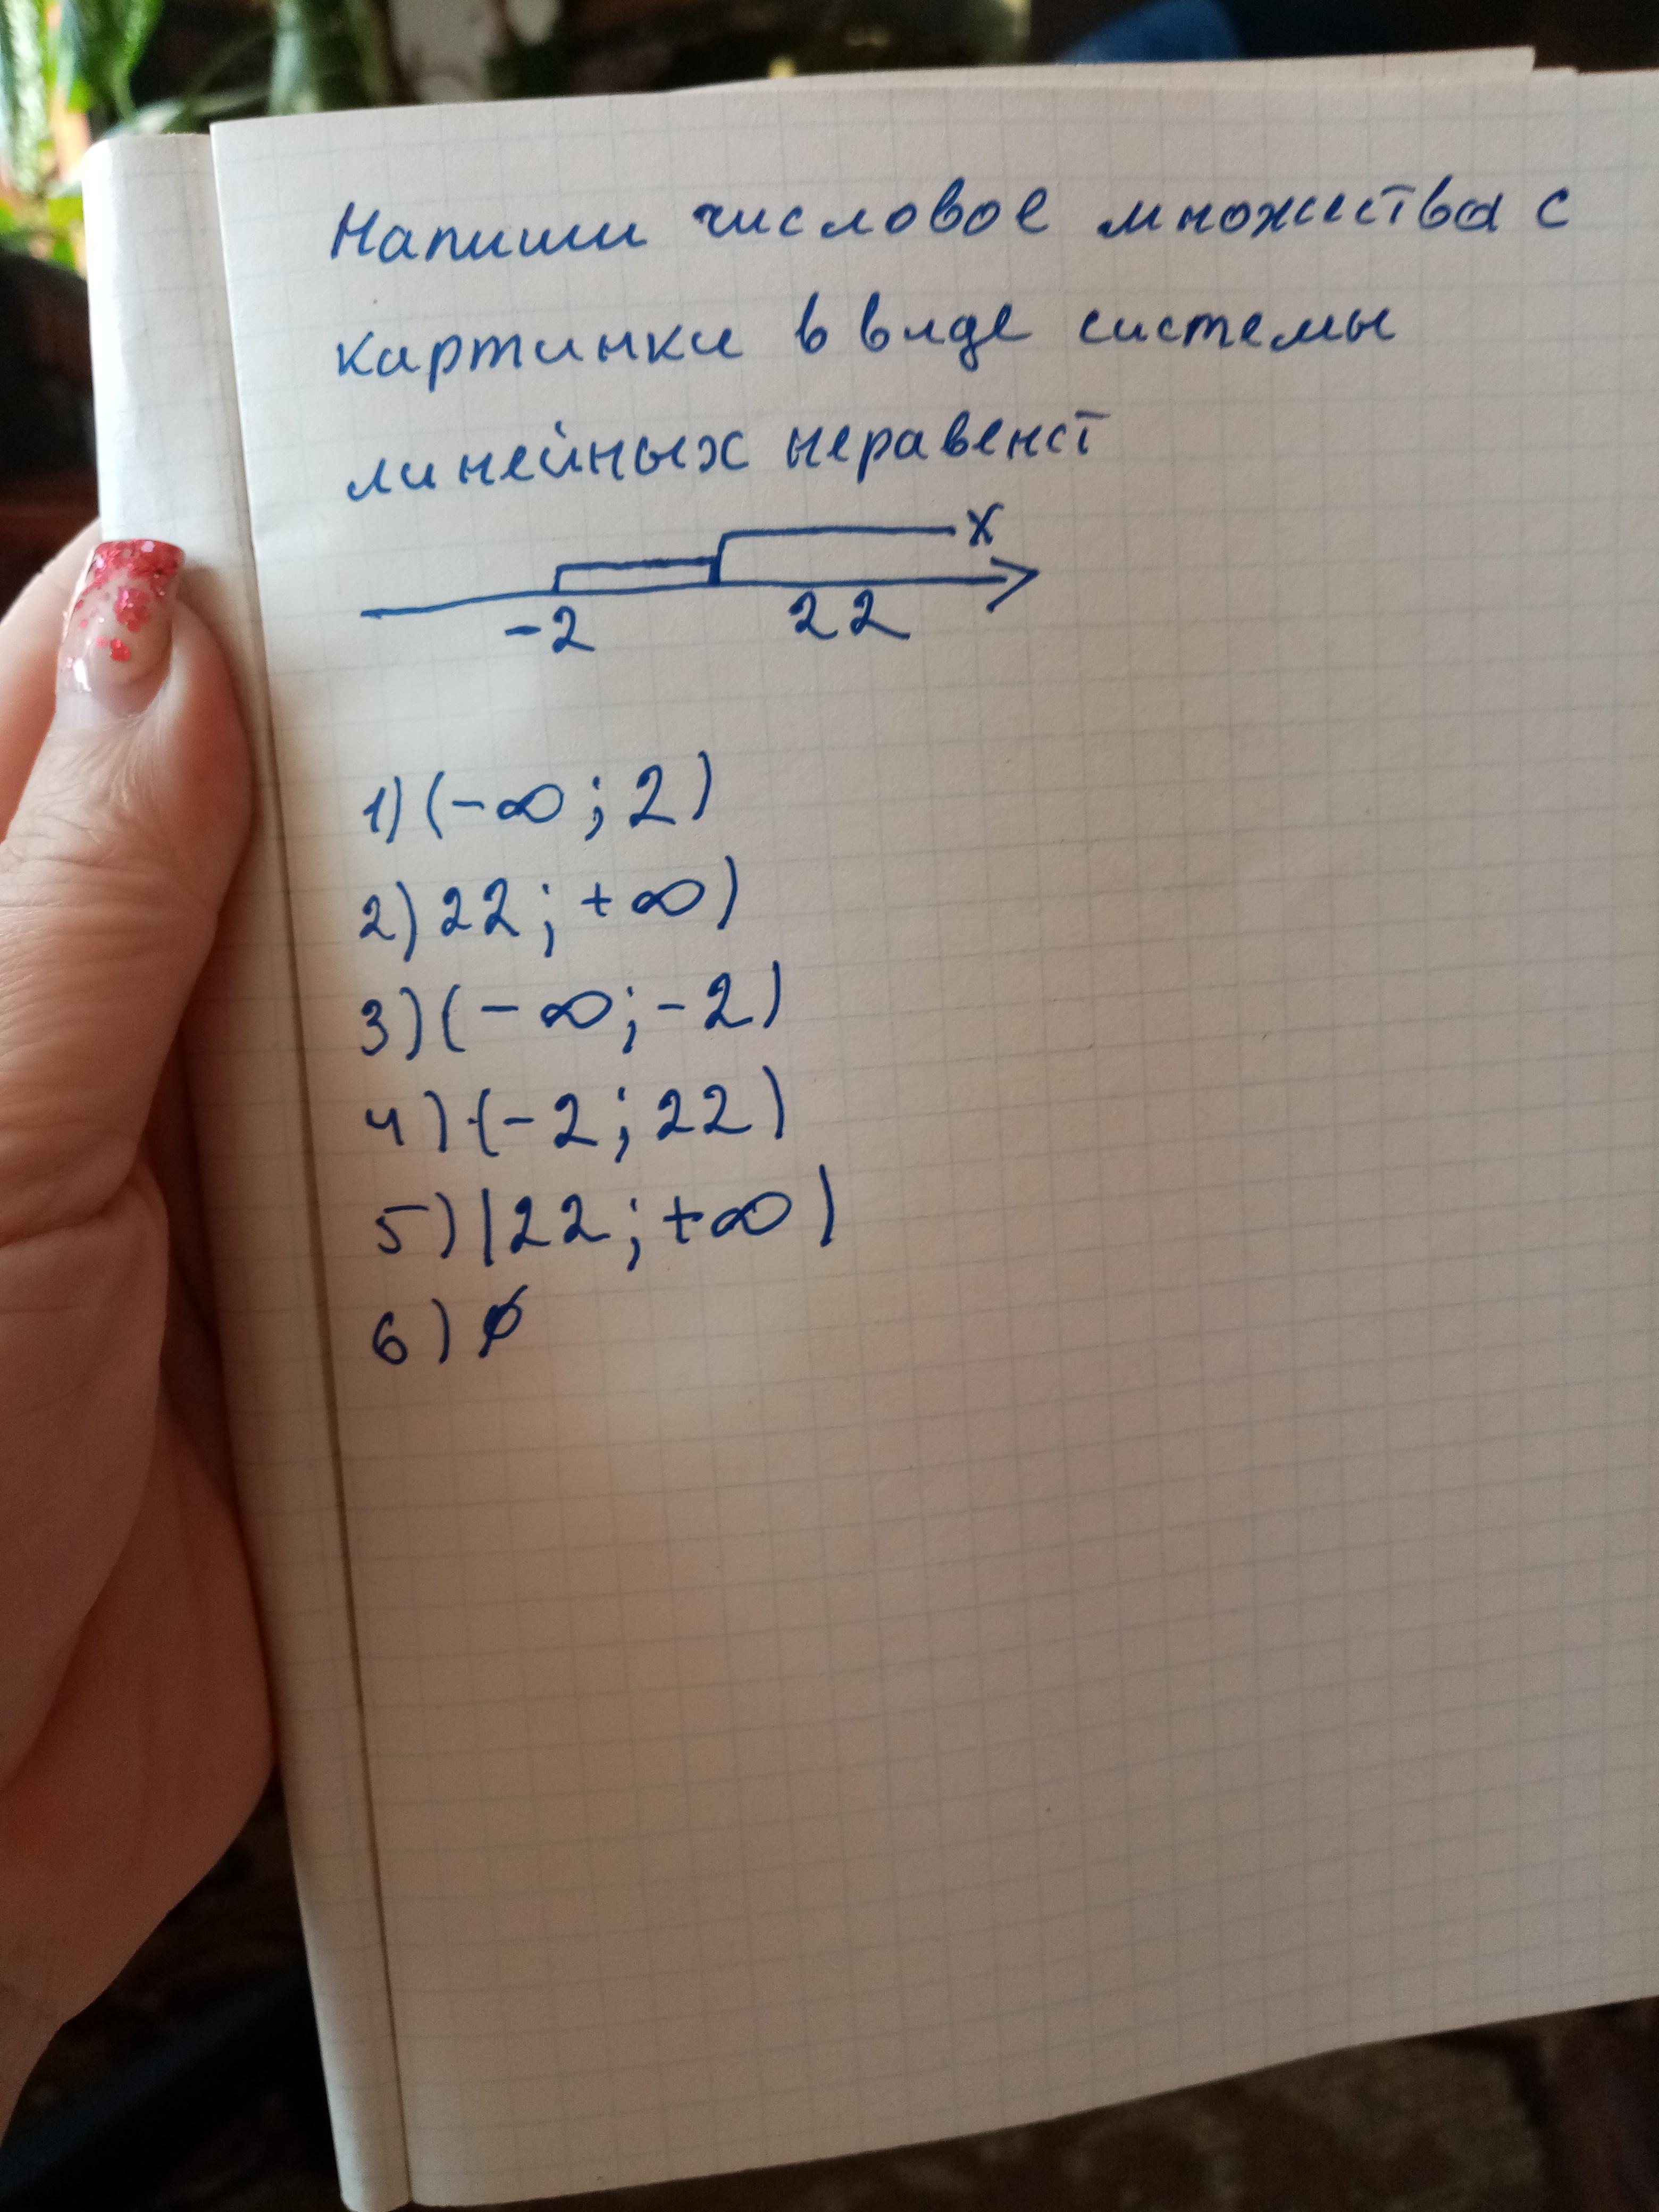 Напиши числовое множества с
картинки в виде системы
линейных неравенст
x
-2 22
1) (-∞; 2)
2) 22; +∞)
3) (-∞; -2)
4) (-2; 22)
5) |22; +∞)
6) ∅